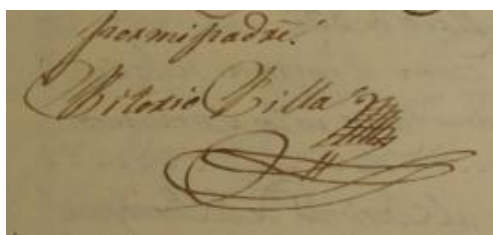 por mi padre.
Vitorio Villa